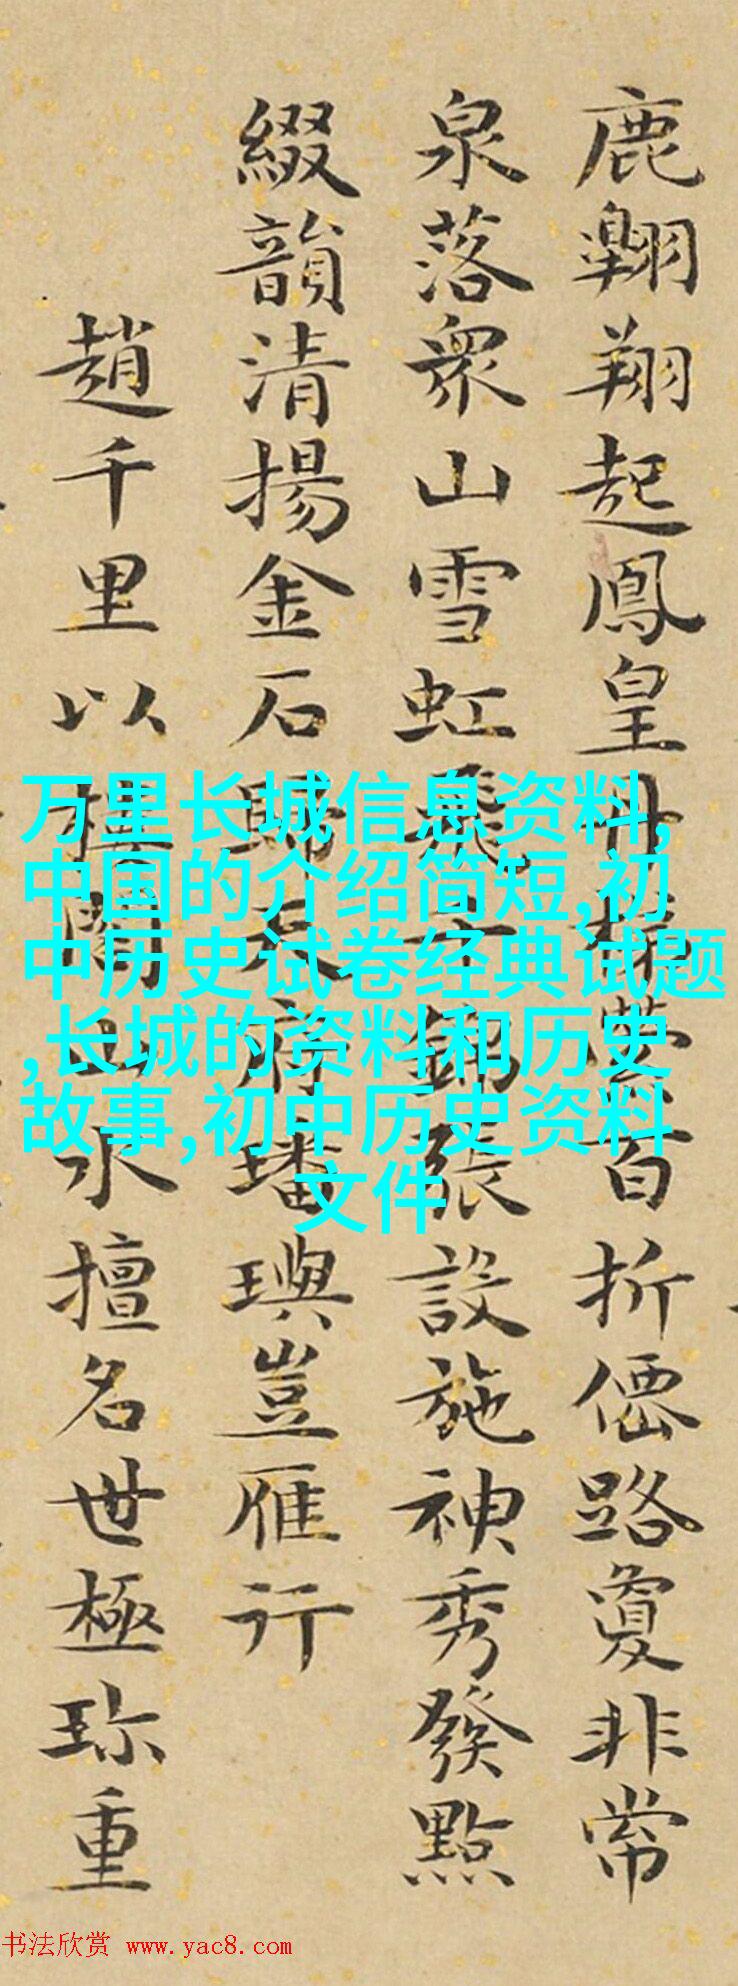 鹿翱翔起鳳皇丹梯縈百折僊路夐非常
泉落衆山雪虹飛錦張設施神秀發點
綴韻清揚金石歸天府璠璵豈雁行
趙千里以樓閣山水擅名世極珎重
万里长城信息资料,
中国的介绍简短,初
中历史试卷经典试题
,长城的资料和历史
故事,初中历史资料
文件
书法欣赏 www.yac8.com